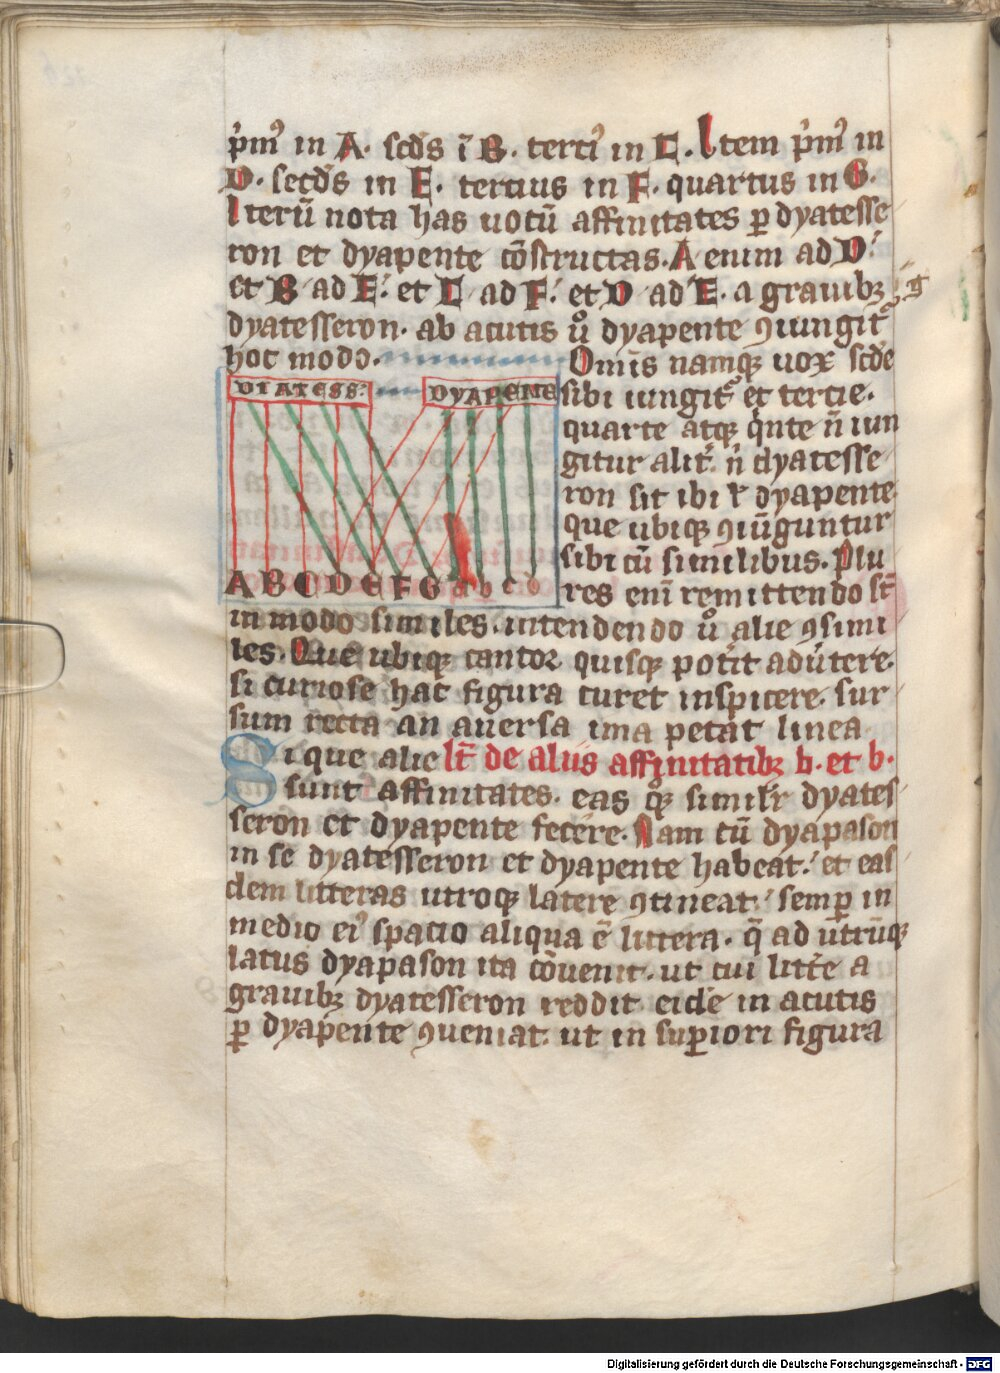 p̄mꝰ in A. scd̄s ī B. terciꝰ in C. Item p̄mꝰ in
D. secd̄s in E. tercius in F. quartus in G.
Iterū nota has uocū affinitates ꝑ dyatesse
ron et dyapente cōstructas. A enim ad D.
et B ad E. et C ad F. et D ad E. a grauibꝫ g
dyatesseron. ab acutis ů dyapente ꝯiungit̉
hoc modo. Om̄is namqꝫ uox scd̄e
DIATESS. DYAPENTE sibi iungit̉ et tercie.
quarte atqꝫ qͥnte n̄ iun
gitur alit̉. n̄ dyatesse
ron sit ibi ⁊ dyapente
que ubiqꝫ ꝯiūguntur
sibi cū similibus. Plu
A B C D E F G a b c d res eni̅ remittendo st̄
in modo similes. intendendo ů alie ꝯsimi
les. Que ubiqꝫ cantor quisqꝫ potīt adūtere.
si curiose hac figura curet inspicere. sur
sum recta an auersa ima petat linea
Sique alie lt̄ de aliis affinitatibꝫ b. et b.
sunt affinitates. eas qͦꝫ similr̄ dyates
seron et dyapente fecere. Nam cū dyapason
in se dyatesseron et dyapente habeat. et eas
dem litteras utroqꝫ latere ꝯtineat. semꝑ in
medio eiꝰ spacio aliqua ē littera. q̄ ad utrūqꝫ
latus dyapason ita cōuenit. ut cui litt̄e a
grauibꝫ dyatesseron reddit eidē in acutis
ꝑ dyapente ꝯueniat. ut in suꝑiori figura
Digitalisierung gefördert durch die Deutsche Forschungsgemeinschaft - DFG